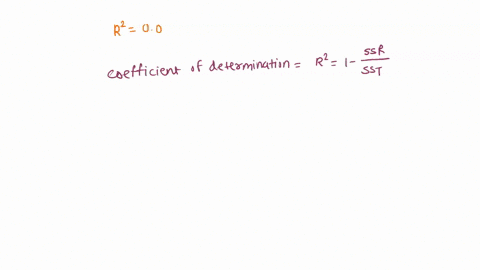 R² = 0.0
coefficient of determination = R² = 1 - SSR/SST